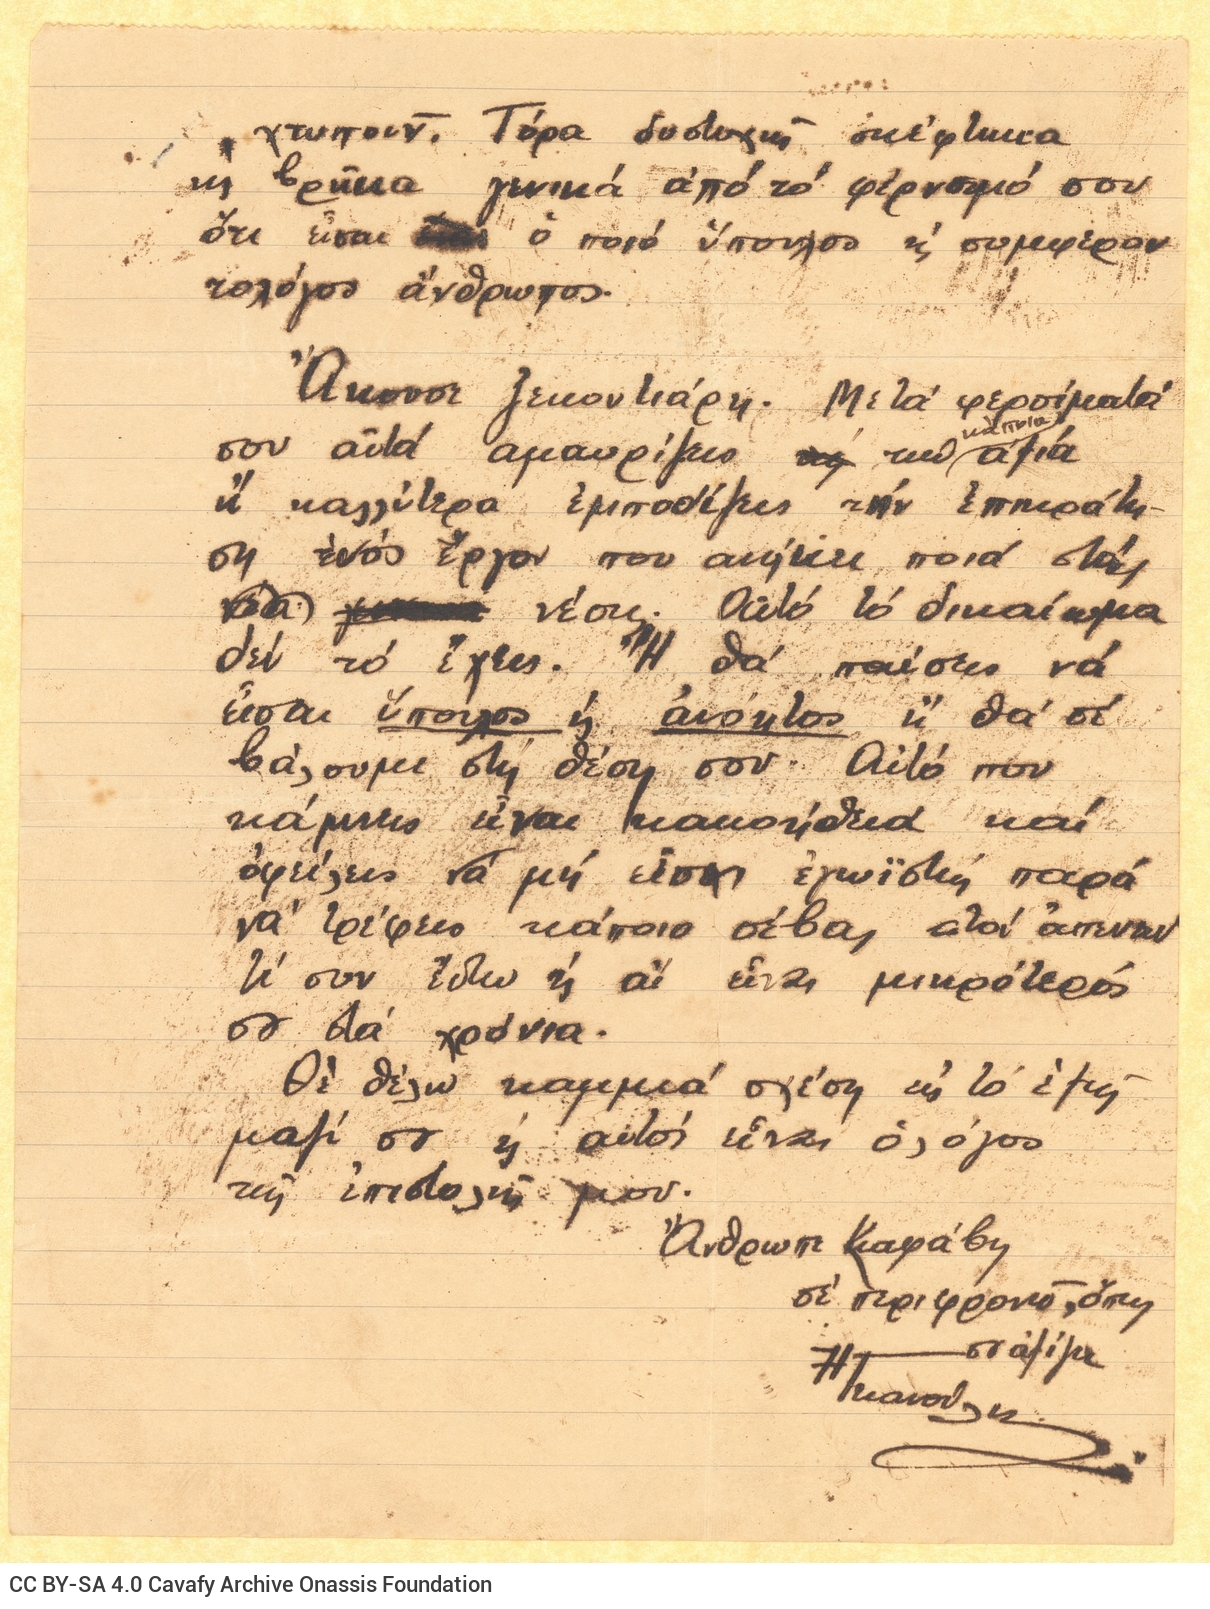 χτυποῦν. Τόρα δυστυχῶς σκέφτηκα
κῃ βρῆκα γενικά ἀπό τό φέρνσιμό σου
ὅτι εἶσαι ὁ ποιό ὕπουλος κῃ συμφερον
τολόγος ἄνθρωπος.
Ἄκουσε ξεκουτιάρη. Μετά φερσίματά
σου αὐτά αμαυρίζεις τήν κάποια ἀξία
ἤ καλλίτερα ἐμποδίζεις τήν ἐπικράτη-
ση ἑνός ἔργου που ανήκει ποιά στούς
νέους. Αὐτό τό δικαίωμα
δέν τό ἔχεις. Ἤ θά παύσεις νά
εἶσαι ὕπουλος κῃ ἀνόητος ἤ θά σέ
βάλουμε στή θέση σου. Αὐτό που
κάμνεις εἶναι κακοήθεια καί
ὀφείλεις νά μή εἶσαι ἐγωϊστής παρά
νά τρέφεις κάποιο σέβας στόν ἀπέναν
τί σου ἔστω κῃ ἄν εἶναι μικρότερός
σου στά χρόνια.
Θέ θέλω καμμιά σχέση ὡς τό ἑξῆς
μαζί σου κῃ αυτός εἶναι ὁ λόγος
τῆς ἐπιστολῆς μου.
Ἄνθρωπε Καφάβη
σέ περιφρονῶ, ὅπως
σου ἀξίζει
CC BY-SA 4.0 Cavafy Archive Onassis Foundation